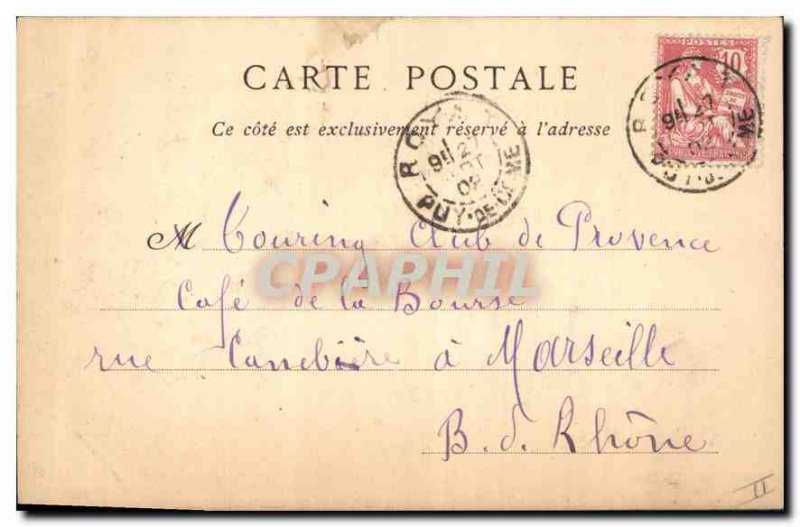 POSTES
10
CARTE POSTALE
Ce côté est exclusivement réservé à l'adresse
ROYAT
9H 27
02
PUY-DE-DOME
M Touring Club de Provence
CPAPHIL
Café de la Bourse
rue Canebière à Marseille
B. d. Rhône
II